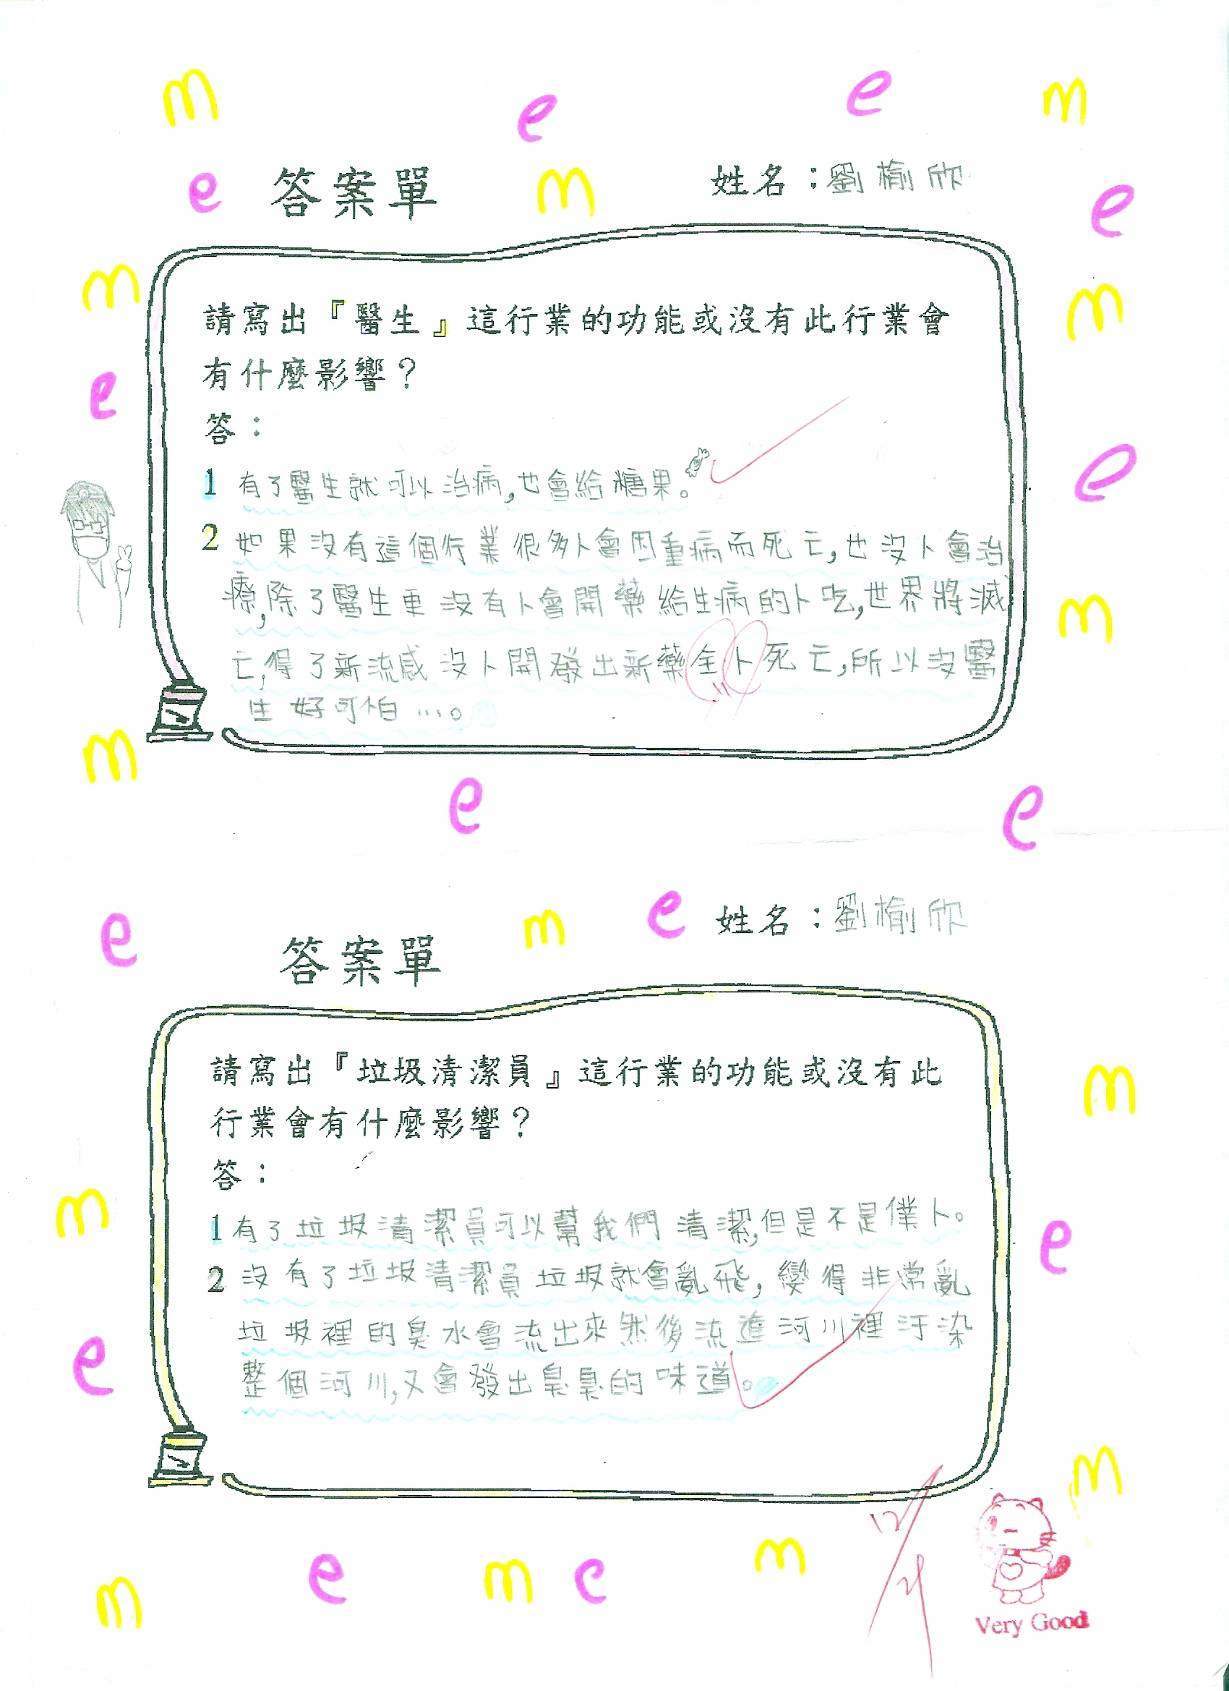 m
e
e
m
e
答案單
m
姓名：劉榆欣
e
m
m
請寫出『醫生』這行業的功能或沒有此行業會
有什麼影響？
e
答：
1 有了醫生就可以治病,也會給糖果。
e
2 如果沒有這個行業很多人會因重病而死亡,也沒人會治
療,除了醫生更沒有人會開藥給生病的人吃,世界將滅
m
亡,得了新流感沒人開發出新藥全人死亡,所以沒醫
生好可怕…。
m
e
e
e
m
e
姓名：劉榆欣
答案單
請寫出『垃圾清潔員』這行業的功能或沒有此
m
行業會有什麼影響？
答：
m
1 有了垃圾清潔員可以幫我們清潔,但是不是僕人。
e
2 沒有了垃圾清潔員垃圾就會亂飛,變得非常亂
垃圾裡的臭水會流出來然後流進河川裡汙染
e
整個河川,又會發出臭臭的味道。
m
12/21
m
e
m
e
m
Very Good